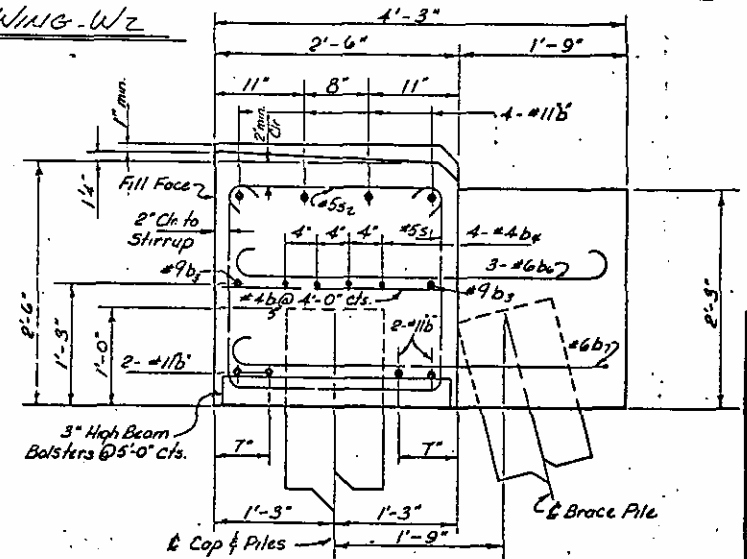 WING-W2
4'-3"
2'-6"
1'-9"
11"
8"
11"
4-#11b
1" min.
2" min. Clr
1'4"
Fill Face
#5s2
2" Clr. to
Stirrup
4"
4"
4"
#5s1
4-#4b4
#9b3
3-#6b6
#4b5@4'-0" cts.
#9b3
2'-6"
1'-3"
1'-0"
2'-3"
2-#11b
2-#11b
#6b7
3" High Beam
Bolsters @5'-0" cts.
7"
7"
1'-3"
1'-3"
℄ Brace Pile
℄ Cap & Piles
1'-9"